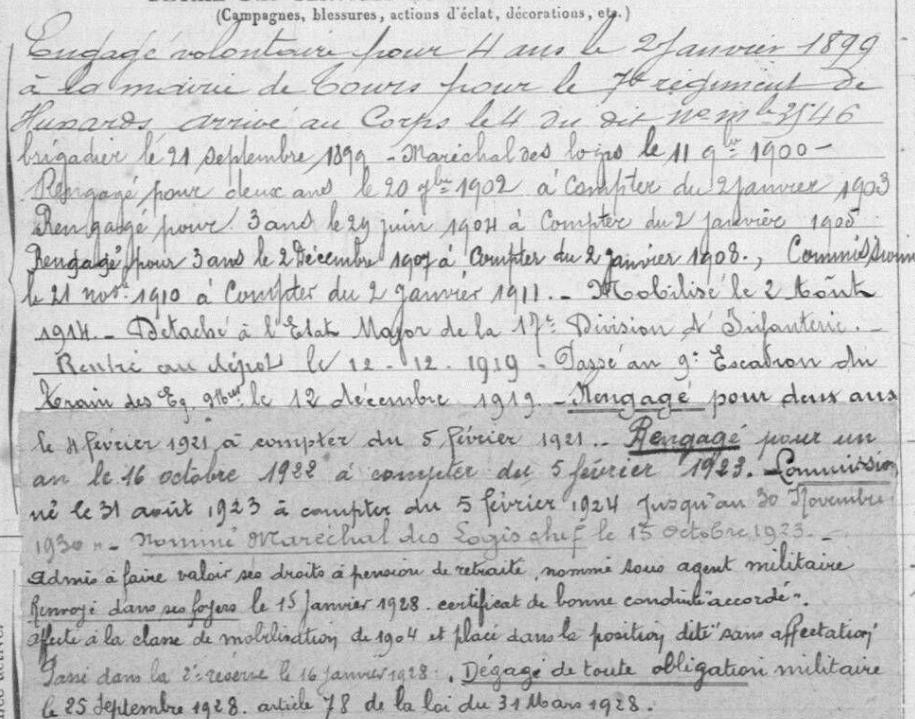 (Campagnes, blessures, actions d'éclat, décorations, etc.)
Engagé volontaire pour 4 ans le 2 janvier 1899
à la mairie de Tours pour le 7e régiment de
Hussards arrivé au Corps le 4 du dit no mle 3546
brigadier le 21 septembre 1899 - Maréchal des logis le 11 9bre 1900 -
Rengagé pour deux ans le 20 9bre 1902 à compter du 2 janvier 1903
Rengagé pour 3 ans le 29 juin 1904 à compter du 2 janvier 1905
Rengagé pour 3 ans le 2 Décembre 1907 à compter du 2 janvier 1908., Commissionné
le 21 nov. 1910 à compter du 2 janvier 1911. - Mobilisé le 2 Août
1914. - Détaché à l'Etat Major de la 17e Division d'Infanterie. -
Rentré au dépôt le 12 - 12 - 1919 - Passé au 9e Escadron du
train des Eq. le 12 décembre 1919. - Rengagé pour deux ans
le 4 février 1921 à compter du 5 février 1921. - Rengagé pour un
an le 16 octobre 1922 à compter du 5 février 1923. Commission
né le 31 août 1923 à compter du 5 février 1924 jusqu'au 30 Novembre
1930 - Nommé Maréchal des Logis chef le 15 octobre 1923. -
Admis à faire valoir ses droits à pension de retraite, nommé sous agent militaire
Renvoyé dans ses foyers le 15 janvier 1928. certificat de bonne conduite "accordé".
Affecté à la classe de mobilisation de 1904 et placé dans la position dite "sans affectation"
Passé dans la 2e réserve le 16 janvier 1928. Dégagé de toute obligation militaire
le 25 Septembre 1928. article 78 de la loi du 31 Mars 1928.